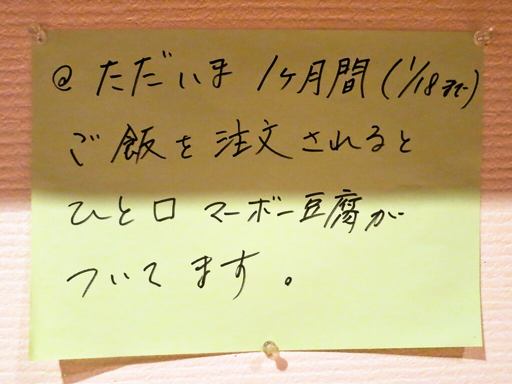 @ ただいま 1ヶ月間(1/18まで)
ご飯を注文されると
ひと口 マーボー豆腐が
ついてます。